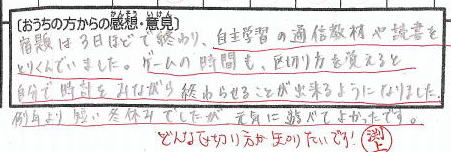 〔おうちの方からの感想・意見〕
宿題は3日ほどで終わり、自主学習の通信教材や読書を
とりくんでいました。ゲームの時間も、区切り方を覚えると
自分で時計をみながら終わらせることが出来るようになりました。
例年より短い冬休みでしたが元気に遊べてよかったです。
どんな区切り方か知りたいです! 渕上